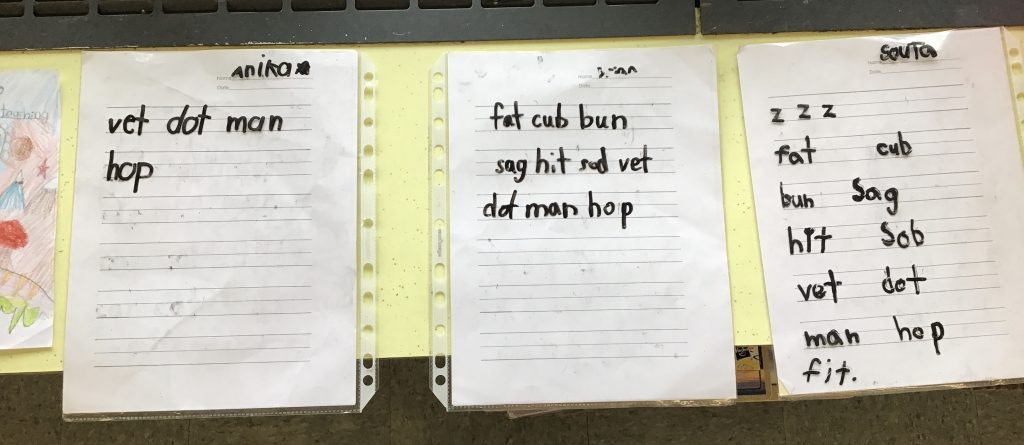 Anika
Name
Date
vet dot man
hop
Name
Date
fat cub bun
sag hit sod vet
dot man hop
Souta
Name
Date
z z z
fat cub
bun Sag
hit Sob
vet dot
man hop
fit.